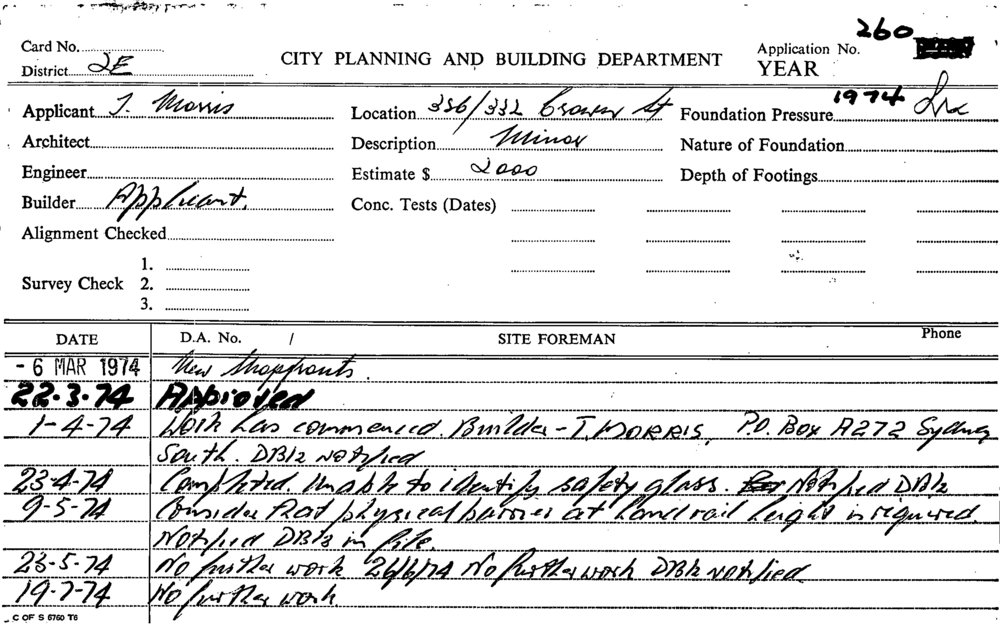 Card No. 260
District 2E CITY PLANNING AND BUILDING DEPARTMENT Application No.
YEAR 1974
Applicant T. Morris Location 336/332 Crown St Foundation Pressure
Architect Description Minor Nature of Foundation
Engineer Estimate $ 2000 Depth of Footings
Builder Applicant. Conc. Tests (Dates)
Alignment Checked
1.
Survey Check 2.
3.
DATE D.A. No. / SITE FOREMAN Phone
- 6 MAR 1974 New Shopfronts.
22.3.74 Approved
1-4-74 Work has commenced. Builder - T. MORRIS, P.O. Box A272 Sydney
South. DB12 notified
23-4-74 Completed. Unable to identify safety glass. Notified DB12
9-5-74 Consider that physical barrier at handrail height is required.
Notified DB12 in file.
23-5-74 No further work 26/6/74 No further work DB12 notified
19-7-74 No further work.
C OF S 6760 T6